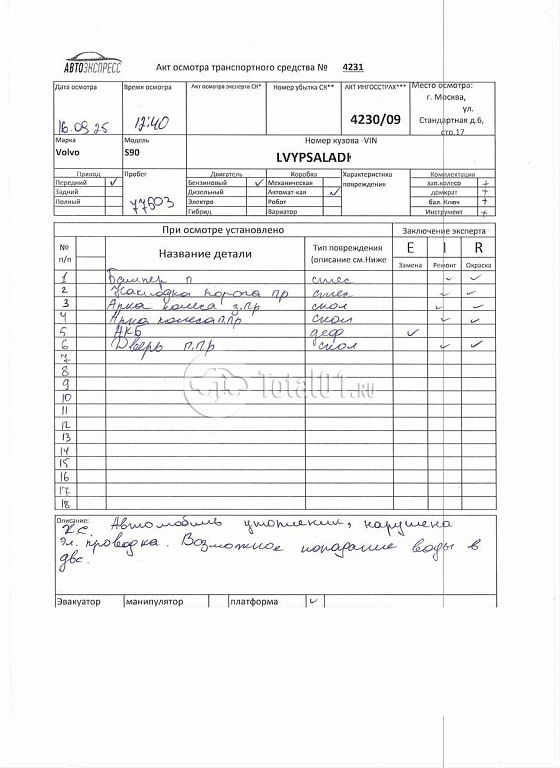 АВТОЭКСПРЕСС
Акт осмотра транспортного средства № 4231
Дата осмотра Время осмотра Акт осмотра эксперта СК* Номер убытка СК** АКТ ИНГОССТРАХ*** Место осмотра:
г. Москва,
ул.
16.09.25 12:40 4230/09 Стандартная д.6,
стр.17
Марка Модель Номер кузова -VIN
Volvo S90 LVYPSALADI
Привод Пробег Двигатель Коробка Характеристика Комплектация
Передний ✓ Бензиновый ✓ Механическая повреждения зап.колесо +
Задний Дизельный Автомат-кая ✓ домкрат +
Полный 77603 Электро Робот бал. Ключ +
Гибрид Вариатор Инструмент +
При осмотре установлено Заключение эксперта
№ Название детали Тип повреждения E I R
п/п (описание см.Ниже Замена Ремонт Окраска
1 Бампер п смес ✓ ✓
2 Накладка порога пр смес ✓ ✓
3 Арка колеса з.пр скол ✓ ✓
4 Арка колеса п.пр скол ✓ ✓
5 АКБ деф ✓
6 Дверь п.пр скол ✓ ✓
7
8
9
10
11
12
13
14
15
16
17
18
Total01.RU
Описание:
Автомобиль утопленик, нарушена
эл. проводка. Возможное попадание воды в
двс.
Эвакуатор манипулятор платформа ✓